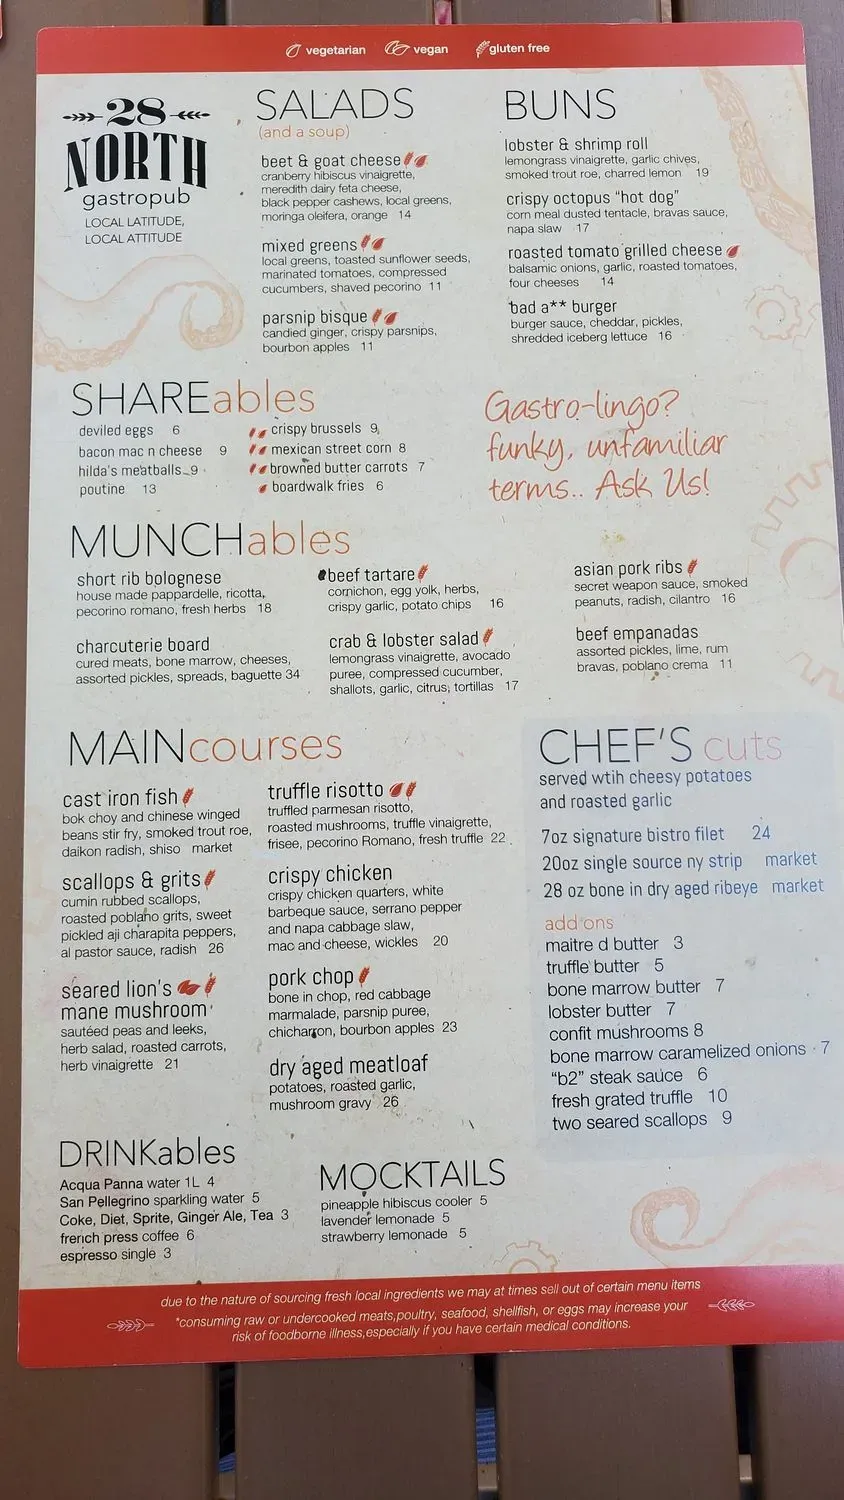 vegetarian vegan gluten free
28
NORTH
gastropub
LOCAL LATITUDE,
LOCAL ATTITUDE
SALADS
(and a soup)
beet & goat cheese
cranberry hibiscus vinaigrette,
meredith dairy feta cheese,
black pepper cashews, local greens,
moringa oleifera, orange 14
mixed greens
local greens, toasted sunflower seeds,
marinated tomatoes, compressed
cucumbers, shaved pecorino 11
parsnip bisque
candied ginger, crispy parsnips,
bourbon apples 11
BUNS
lobster & shrimp roll
lemongrass vinaigrette, garlic chives,
smoked trout roe, charred lemon 19
crispy octopus "hot dog"
corn meal dusted tentacle, bravas sauce,
napa slaw 17
roasted tomato grilled cheese
balsamic onions, garlic, roasted tomatoes,
four cheeses 14
bad a** burger
burger sauce, cheddar, pickles,
shredded iceberg lettuce 16
SHAREables
deviled eggs 6
bacon mac n cheese 9
hilda's meatballs 9
poutine 13
crispy brussels 9
mexican street corn 8
browned butter carrots 7
boardwalk fries 6
Gastro-lingo?
funky, unfamiliar
terms.. Ask Us!
MUNCHables
short rib bolognese
house made pappardelle, ricotta,
pecorino romano, fresh herbs 18
charcuterie board
cured meats, bone marrow, cheeses,
assorted pickles, spreads, baguette 34
*beef tartare
cornichon, egg yolk, herbs,
crispy garlic, potato chips 16
crab & lobster salad
lemongrass vinaigrette, avocado
puree, compressed cucumber,
shallots, garlic, citrus, tortillas 17
asian pork ribs
secret weapon sauce, smoked
peanuts, radish, cilantro 16
beef empanadas
assorted pickles, lime, rum
bravas, poblano crema 11
MAINcourses
cast iron fish
bok choy and chinese winged
beans stir fry, smoked trout roe,
daikon radish, shiso market
scallops & grits
cumin rubbed scallops,
roasted poblano grits, sweet
pickled aji charapita peppers,
al pastor sauce, radish 26
seared lion's
mane mushroom
sautéed peas and leeks,
herb salad, roasted carrots,
herb vinaigrette 21
truffle risotto
truffled parmesan risotto,
roasted mushrooms, truffle vinaigrette,
frisee, pecorino Romano, fresh truffle 22
crispy chicken
crispy chicken quarters, white
barbeque sauce, serrano pepper
and napa cabbage slaw,
mac and cheese, wickles 20
pork chop
bone in chop, red cabbage
marmalade, parsnip puree,
chicharron, bourbon apples 23
dry aged meatloaf
potatoes, roasted garlic,
mushroom gravy 26
CHEF'S cuts
served wtih cheesy potatoes
and roasted garlic
7oz signature bistro filet 24
20oz single source ny strip market
28 oz bone in dry aged ribeye market
add ons
maitre d butter 3
truffle butter 5
bone marrow butter 7
lobster butter 7
confit mushrooms 8
bone marrow caramelized onions 7
"b2" steak sauce 6
fresh grated truffle 10
two seared scallops 9
DRINKables
Acqua Panna water 1L 4
San Pellegrino sparkling water 5
Coke, Diet, Sprite, Ginger Ale, Tea 3
french press coffee 6
espresso single 3
MOCKTAILS
pineapple hibiscus cooler 5
lavender lemonade 5
strawberry lemonade 5
due to the nature of sourcing fresh local ingredients we may at times sell out of certain menu items
*consuming raw or undercooked meats,poultry, seafood, shellfish, or eggs may increase your
risk of foodborne illness,especially if you have certain medical conditions.